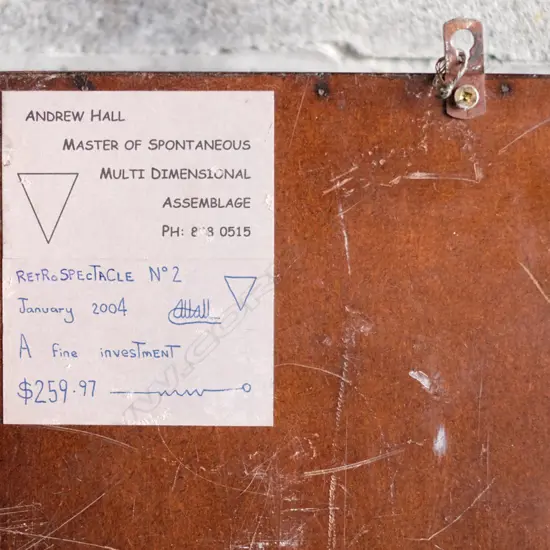 ANDREW HALL
MASTER OF SPONTANEOUS
MULTI DIMENSIONAL
ASSEMBLAGE
PH: 0515
RETROSPECTACLE Nº 2
January 2004
A fine investment
$259.97